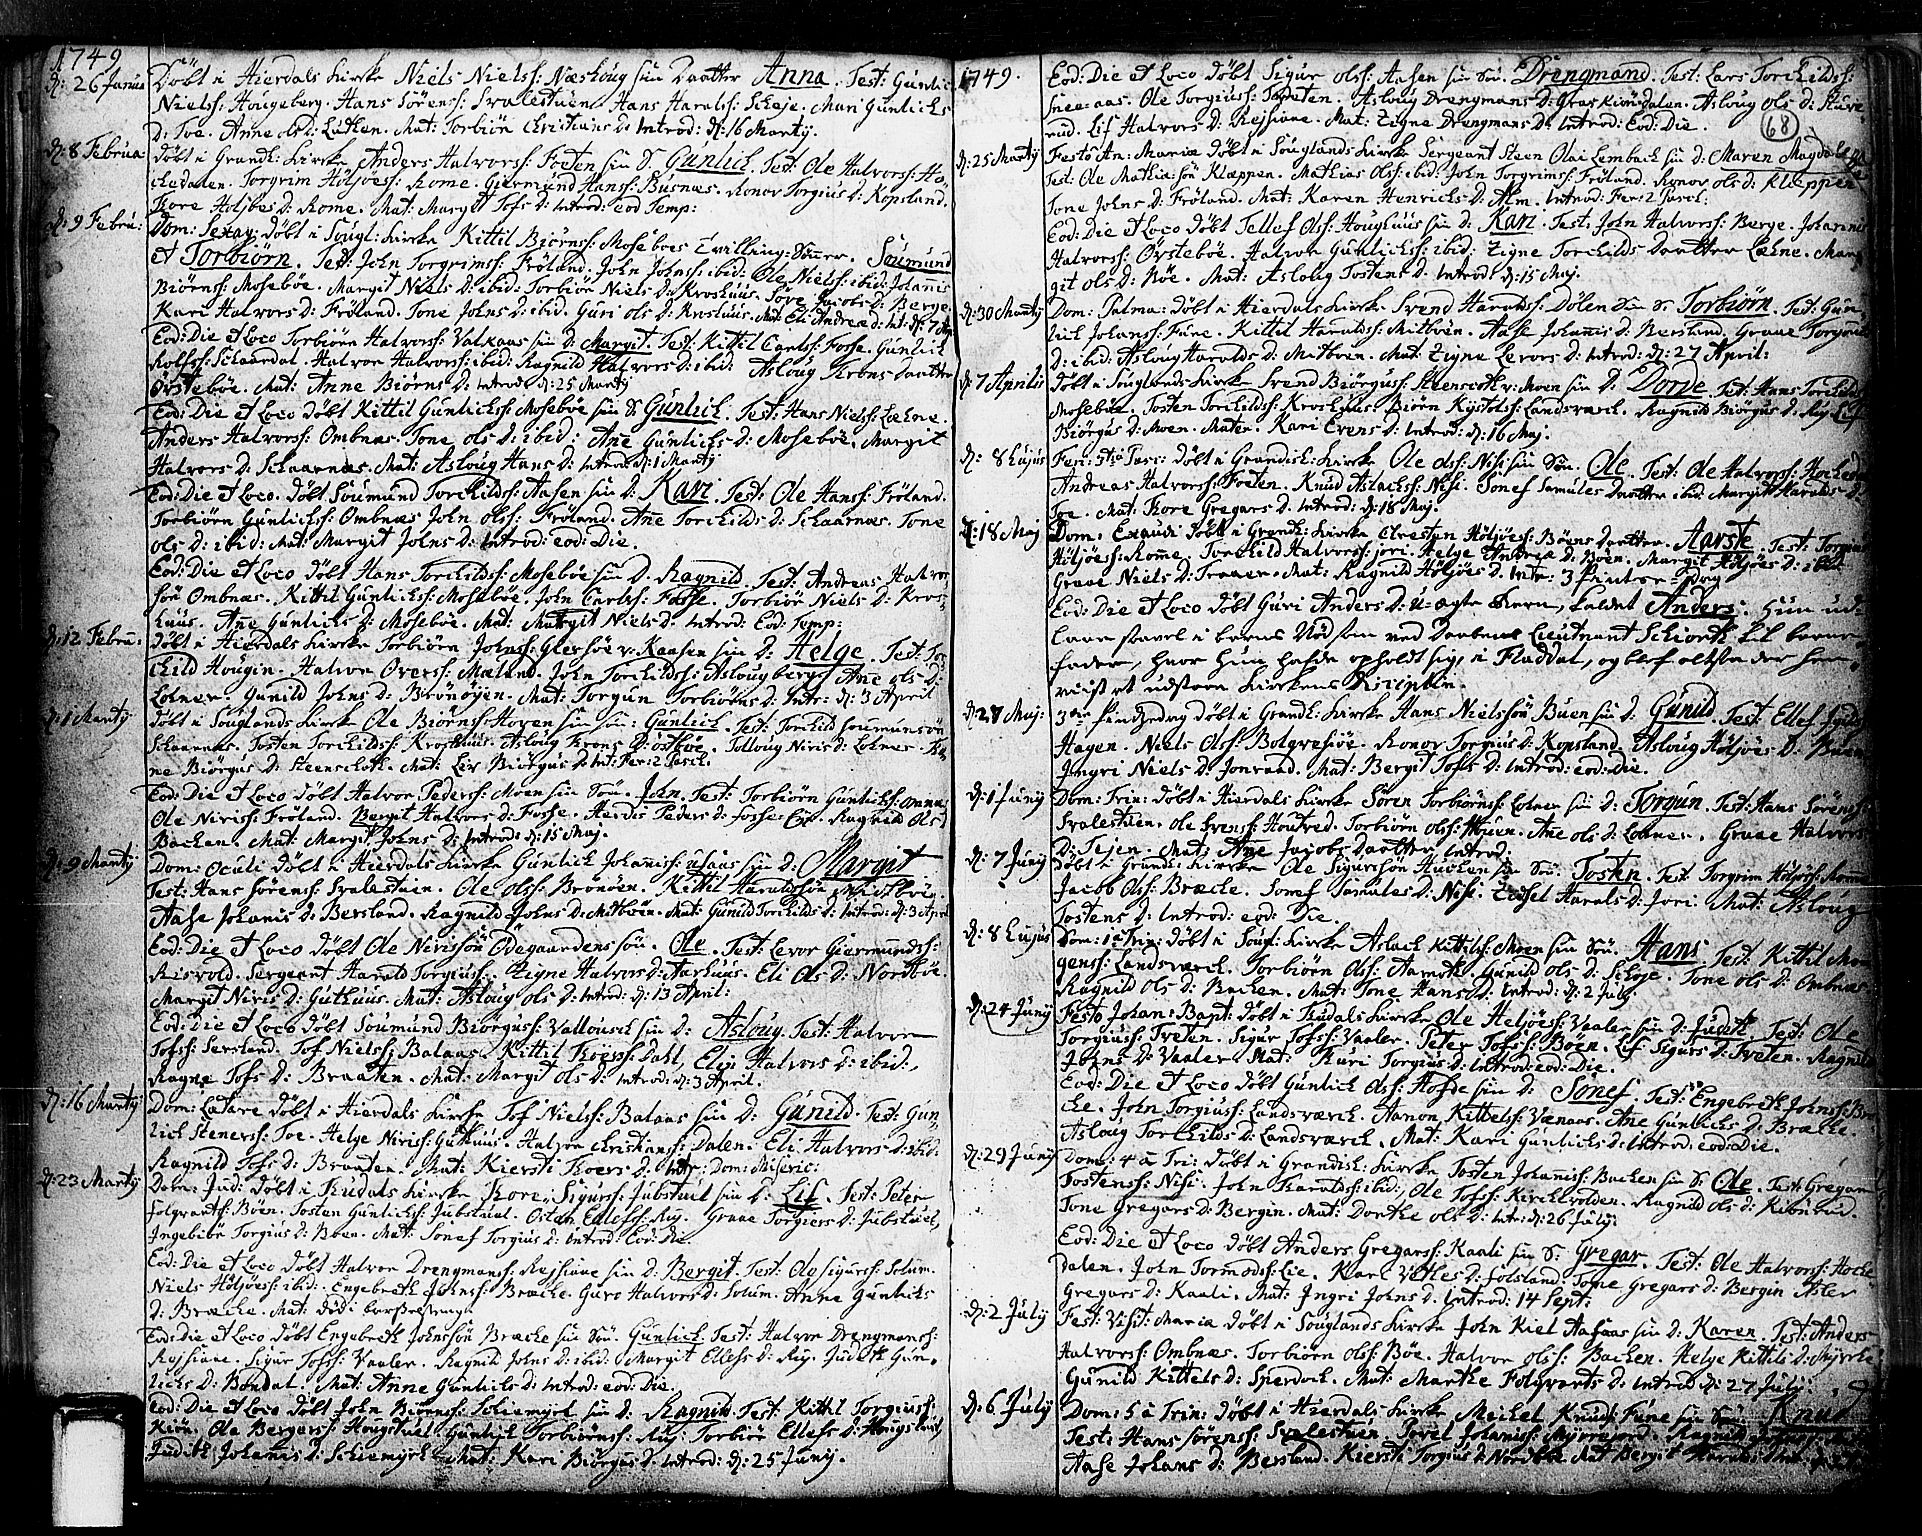 1749
d: 26 Janua Döbt i Hierdals Kirke Niels Nielss: Næshoug sin Daatter Anna. Test: Gunlic
Nielss: Hougeberg. Hans Sörenss: Svalestuen. Hans Haralss: Skeje. Mari Gunlichs
D: Toe. Anne ols d: Lutken. Mat: Torbiör Christians d: Introd: d: 16 Martij.
d: 8 Februa döbt i Grandk: Kirke Anders Halvorss: Foeten sin S. Gunlich. Test: Ole Halvorss: Ho-
kedalen. Torgrim Höljöess: Rome. Giermund Hanss: Busnæs. Ronov Torgius d: Kopsland.
Tore Höljöes d: Rome. Mat: Margit Tofs d: Introd: eod Temp:
d: 9 Febru: Dom: Sexag: döbt i Sougl: Kirke Kittil Biörnss: Moseböes Tvilling-Sönner. Soumund
et Torbiörn. Test: John Torgrimss: Fröland. John Johnss: ibid: Ole Nielss: ibid: Johannis
Biörnss: Moseböe. Margit Niels d: ibid: Torbiör Niels d: Kroshuus. Tore Jacobs d: Berge.
Kari Halvors d: Fröland. Tone Johns d: ibid. Guri ols d: Mat: Eli Andreæ d: Int: d: 7
Eod: Die et Loco Torbiörn Halvorss: Valkaas sin d: Margit. Test: Kittil Carlss: Fosse. Gunlich
Rolfss: Skaardal. Halvor Halvorss: ibid: Ragnild Halvors d: ibid: Asloug Trons daatter
Örsteböe. Mat: Anne Biörns d: Introd d: 25 Martij
Eod: Die et Loco döbt Kittil Gunlichss: Moseböe sin S: Gunlich. Test: Hans Nielss: Lohne.
Anders Halvorss: Ombnæs. Tone ols d: ibid: Ane Gunlichs d: Moseböe. Margit
Halvors d: Skaarnæs. Mat: Asloug Hans d: Introd: d: 1 Martij
Eod: Die et Loco. döbt Soumund Torchildss: Aasen sin d: Kari. Test: Ole Hanss: Fröland.
Torbiörn Gunlichss: Ombnæs John olss: Fröland. Ane Torchilds d: Skaarnæs. Tone
ols d: ibid: Mat: Margit Johns d: Introd: eod: Die.
Eod: Die et Loco döbt Hans Torchildss: Moseböe sin d. Ragnild. Test: Andreas Halvor
sön Ombnæs. Kittil Gunlichss: Moseböe. John Carlss: Fosse. Torbiör Niels d: Kros-
huus. Ane Gunlichs d: Moseböe. Mat: Margit Niels d: Introd: Eod: Temp:
d: 12 Febru: döbt i Hierdals Kirke Torbiörn Johnss: Gleesöe v: Kaasen sin d: Helge. Test: Tor
child Hougin. Halvor Overss: Mæland. John Torchildss: Aslougberg. Ane ols d:
Lohner. Gunild Johns d: Brönöjen. Mat: Torgun Torbiörns d: Intr: d: 3 April
d: 1 Martij döbt i Souglands Kirke Ole Biörnss: Hoven sin sön: Gunlich. Test: Torchild Soumunsön
Skaarnæs. Tosten Torchildss: Kroshuus. Asloug Trons d: östböe. Tolloug Niris d: Lohner.
ne Biörgus d: Steenskoth. Mat: Liv Biörgus d: Int: Fer: 2 Pasch.
Eod: Die et Loco döbt Halvor Pederss: Moen sin Sön. John. Test: Torbiörn Gunlichss: Omnæs
Ole Niriss: Fröland. Bergit Halvors d: Fosse. Herdis Peders d: Fosse Ragnild Ols
Backen. Mat: Margit Johns d: Introd: d: 15 Maj.
d: 9 Martij Dom: Oculi döbt i Hierdals Kirke Gunlich Johaniss: Usaas sin d: Margit
Test: Hans Sörenss: Svalestuen. Ole olss: Bronöen. Kittil Haraldsön Midtböe.
Aase Johanis d: Bersland. Ragnild Johns d: Mitböen. Mat: Gunild Torchilds d: Introd: d: 3 April
Eod: Die et Loco döbt Ole Nirissön Ödegaardens sön. Ole. Test: Levor Giermundss:
Risvold. Sergeant Harald Torgiuss: Zigne Halvors d: Aarhuus. Eli Ols d: Nordböe.
Margit Niris d: Guthuus. Mat: Asloug ols d: Introd: d: 13 April:
Eod: Die et Loco döbt Soumund Biörguss: Vallousch sin d: Asloug. Test: Halvor
Tofss: Sersland. Tof Nielss: Balaas. Kittil Thoerss: Dahl, Eli Halvors d: ibid:
Ragne Tofs d: Braaten. Mat: Margit ols d: Introd: d: 3 April.
d: 16 Martij Dom: Lætare döbt i Hierdals Kirke Tof Nielss: Balaas sin d: Gunild. Test: Gun
lich Stenerss: Toe. Helge Niriss: Guthuus. Halvor Christianss: Dalen. Eli Halvors d: ibid:
Ragnild Tofs d: Braaten. Mat: Kiersti Thoers d: Intr: Dom: Miseric:
d: 23 Martij Dom: Jud: döbt i Tudals Kirke Tore Sigurss: Jubstuel sin d: Lif. Test: Peter
Folqvartss: Böen. Tosten Gunlichss: Jubstuel. Osten Ellefss: Rüj. Graae Torgiers d: Jubstuel,
Ingebiör Torgius d: Böen. Mat: Sonef Torgius d: Introd: Eod: Die
Eod: Die et Loco döbt Halvor Drengmanss: Rejsjane sin d: Bergit. Test: Ole Sigurss: Solum.
Niels Höljöess: ibid: Engebreth Johnss: Bræcke. Guro Halvors d: Solum. Anne Gunlichs
d: Bræcke. Mat: död:
Eod: Die et Loco döbt Engebreth Johnssön Bræcke sin Sön. Gunlich. Test: Halvor Drengmanss:
Rejsjane. Sigur Tofss: Vaaler. Ragnild Johns d: ibid: Margit Ellefs d: Rüj. Judeth Gun-
lichs d: Bondal. Mat: Anne Gunlichs d: Introd: eod: Die.
Eod: Die et Loco döbt John Biörnss: Schiemyrk sin d: Ragnild. Test: Kittil Torgiuss:
Kiön. Ole Bergerss: Hougstuel. Gunlich Torbiörnss: Rüj. Torbiör Ellefs d: Hougstuel.
Judith Johanis d: Schiemyrk. Mat: Kari Biörgus d: Introd: d: 25 Junij.
1749.
68
Eod: Die et Loco döbt Sigur olss: Aasen sin Sön. Drengmand. Test: Lars Torchildss:
Snee-aas. Ole Torgiuss: Tveten. Asloug Drengmans d: Graskiöndalen. Asloug ols d: Kure-
rud. Lif Halvors d: Rejsjane. Mat: Zigne Drengmans d: Introd: Eod: Die.
d: 25 Martij Festo An: Mariæ döbt i Souglands Kirke Sergeant Steen Olai Lemback sin d: Maren Magdalena
Test: Ole Mathia sön Kleppen. Mathias Olss: ibid: John Torgrimss: Fröland. Ronov ols d: Kleppen
Tone Johns d: Fröland. Mat: Karen Henrichs d: Alm. Introd: Fer: 2 Pasch:
Eod: Die et Loco döbt Tellef Olss: Houghuus sin d: Kari. Test: John Halvorss: Berge. Johannis
Halvorss: Örsteböe. Halvor Gunlichss: ibid: Zigne Torchilds daatter Lohne. Mar-
git ols d: Böe. Mat: Asloug Tostens d: Introd: d: 15 Maj.
d: 30 Martij Dom: Palma: döbt i Hierdals Kirke Svend Haraldss: Dölen sin S: Torbiörn. Test: Gun-
lich Johanss: Fune. Kittil Haraldss: Mitböen. Aase Johannis d: Bersland. Graae Torgrims
d: ibid: Asloug Haralds d: Mitböen. Mat: Zigne Levors d: Introd: d: 27 April:
d: 7 Aprilis döbt i Souglands Kirke Svend Biörguss: Steenscoth v: Moen sin d: Dorde. Test: Hans Torchilds
Moseböe. Tosten Torchildss: Kroshuus. Biörn Kystolss: Landsværck. Ragnild Biörgus d: Rüj. Lif
Biörgus d: Moen. Mater. Kari Evens d: Introd: d: 16 Maj.
d: 8 Ejus Feri: 3tia Pasc: döbt i Grandsh: Kirke Ole olss: Nisi sin Sön. Ole. Test: Ole Halvorss: Hockedal
Andreas Halvorss: Foeten. Knud Aslachss: Nisi. Sonef Samules daatter ibid: Margit Haralds d:
Toe. Mat: Tore Gregars d: Introd: d: 18 Maj.
d: 18 Maj Dom: Exaudi döbt i Grandk: Kirke Christen Höljöess: Böens daatter. Aarste. Test: Torgius
Höljöess: Romme. Torchild Halvorss: Jori. Helge Andreæ d: Böen. Margit Höljöes d: ibid
Graae Niels d: Mat: Ragnild Höljöes d: Intr: 3 Pintse-Dag
Eod: Die et Loco döbt Guri Anders d: U-ægte Barn, kaldet Anders. Hun ud-
laae saavel i barns Nöd som ved Daaben Lieutnant Schiorth til barne-
fader, hvor hun hafde opholdt sig, i Fladdal, og blef
at udstaae Kirkens Disciplin.
d: 27 Maj: 3die Pindzedag döbt i Grandk: Kirke Hans Nielssön Buen sin d: Gunild. Test: Ellef
Hagen. Niels Olss: Bolgvasiöe. Ronov Torgius d: Kopsland. Asloug Höljöes d: Buen
Jngri Niels d: Jonraad. Mat: Bergit Tofs d: Introd: eod: Die.
d: 1 Junij Dom: Trin: döbt i Hierdals Kirke Sören Torbiörnss: Lohner sin d: Torgun. Test: Hans Sörenss:
Svalestuen. Ole Svenss: Houtved. Torbiörn olss: Houen. Ane ols d: Lohner. Graae Halvors
d: Tejen. Mat: Ane Jacobs daatter Introd:
d: 7 Junij döbt i Grands: Kirke Ole Sigurssön Huoken sin Sön Tosten. Test: Torgrim Höljöss: Romme
Jacob Olss: Bræcke. Sonef Samules d: Nisi. Eidsel Haralds d: Jori. Mat: Asloug
Tostens d: Introd: eod: Die.
d: 8 Ejus Dom: 1 a Trin: döbt i Sougl: Kirke Aslach Kittilss: Moen sin Sön. Hans. Test: Kittil Mo-
genss: Landsværck. Torbiörn Olss: Aamoth. Gunild ols d: Skoje. Tone ols d: Ombnæs
Ragnild ols d: Backen. Mat: Tone Hans d: Introd: d: 2 July
d: 24 Junij Festo Johan: Bapt: döbt i Tudals Kirke Ole Heljöess: Vaaler sin d: Judeth. Test: Ole
Torgiuss: Tveten. Sigur Tofss: Vaaler. Peter Tofss: Böen. Lif Sigurs d: Tveten. Ragnild
Johns d: Vaaler. Mat: Turi Torgius d: Introd: eod: Die.
Eod: Die et Loco döbt Gunlich Olss: Hofde sin d: Sonef. Test: Engebreth Johnss: Bræ
cke. John Torgiuss: Landsværck. Aanon Kittelss: Vænaas. Ane Gunlichs d: Bræcke.
Asloug Torchilds d: Landsværck. Mat: Kari Gunlichs d: Introd: eod: Die.
d: 29 Junij Dom: 4 a Tri: döbt i Grandsk: Kirke Tosten Johannss: Backen sin S: Ole. Test: Gregar
Tostenss: Nisi. John Haraldss: ibid: Ole Tofss: Kirckvolden. Ragnild ols d:
Tone Gregars d: Bergin. Mat: Dorthe ols d: Intr: d: 26 July.
Eod: Die et Loco döbt Anders Gregarss: Kaali sin S: Gregar. Test: Ole Halvorss: Hocke
dalen. John Tormodss: Lie. Kari Vethes d: Folsland. Tone Gregars d: Bergin. Asler
Gregars d: Kaali. Mat: Jngri Johns d. Introd: 14 Sept:
d: 2 July Fest: Visit: Mariæ döbt i Souglands Kirke John Kiel Aasaas sin d: Karen. Test: Anders
Halvorss: Ombnæs. Torbiörn olss: Böe. Halvor olss: Backen. Helge Kittils d: Myrke
Gunild Kittels d: Sperdock. Mat: Marthe Folqvarts d: Introd: d: 27 July:
d: 6 July Dom: 5 a Trin: döbt i Hierdals Kirke Michel Knuds: Fune sin Sön: Knud
Test: Hans Sörenss: Svalestuen. Povel Johaniss: Myrregord. Ragnild
Aase Johans d: Bersland. Kiersti Torgius d: Nordböe. Mat: Bergit Haralds